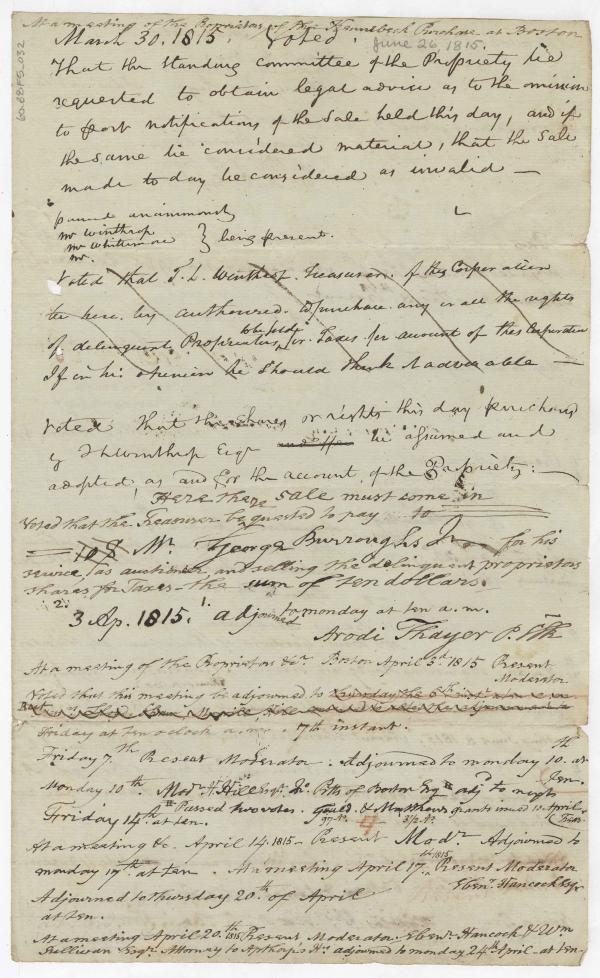 At a meeting of the Proprietors of the Kennebeck Purchase at Boston
March 30. 1815. Voted.
June 26, 1815.
60-88FS-032
That the Standing Committee of the Propriety be
requested to obtain legal advice as to the omission
to post notifications of the Sale held this day, and if
the same be considered material, that the Sale
made to day be considered as invalid —
passed unanimously
mr Winthrop
mr Whitemore
mr.
} being present.
Voted that T. L. Winthrop. Treasurer. of this Corporation
be here. by authorized. to purchase any or all the rights
to be sold
of delinquent Proprietors, for Taxes for account of this Corporation
If in his opinion he should think it adviseable —
Voted That the shares or rights this day purchased
by T L Winthrop Esqr be assumed and
adopted, as and for the account of the Propriety: —
Here the sale must come in
Voted that the Treasurer be requested to pay to
Mr. George Burroughs Jr for his
service, as auctioneer and selling the delinquent proprietors
shares for Taxes – the sum of ten dollars.
2. 3 Ap. 1815. 1. adjourned to monday at ten a.m.
Arodi Thayer P. Clk
At a meeting of the Proprietors &c. Boston April 3d 1815 Present
Moderator
Voted that this meeting be adjourned to
Friday at ten o clock a.m. 7th instant.
Friday 7.th Present Moderator. Adjourned to monday 10.th at
Ten.
Monday 10th. Modr. Hill Esqr. of Boston Esqr adjd to next
Friday 14th at ten. Passed two votes. & Matthews grants issued 10 April
At a meeting &c. April 14. 1815 – Present Modr. Adjourned to
monday 17th at ten. At a meeting April 17th 1815. Present Moderator
Ebenr Hancock Esqr
Adjourned to thursday 20th of April
at ten.
At a meeting April 20th 1815. Present Moderator. Ebenr. Hancock & Wm
Sullivan Esqr. Attorney to Apthorp's Hrs adjourned to monday 24th April – at ten